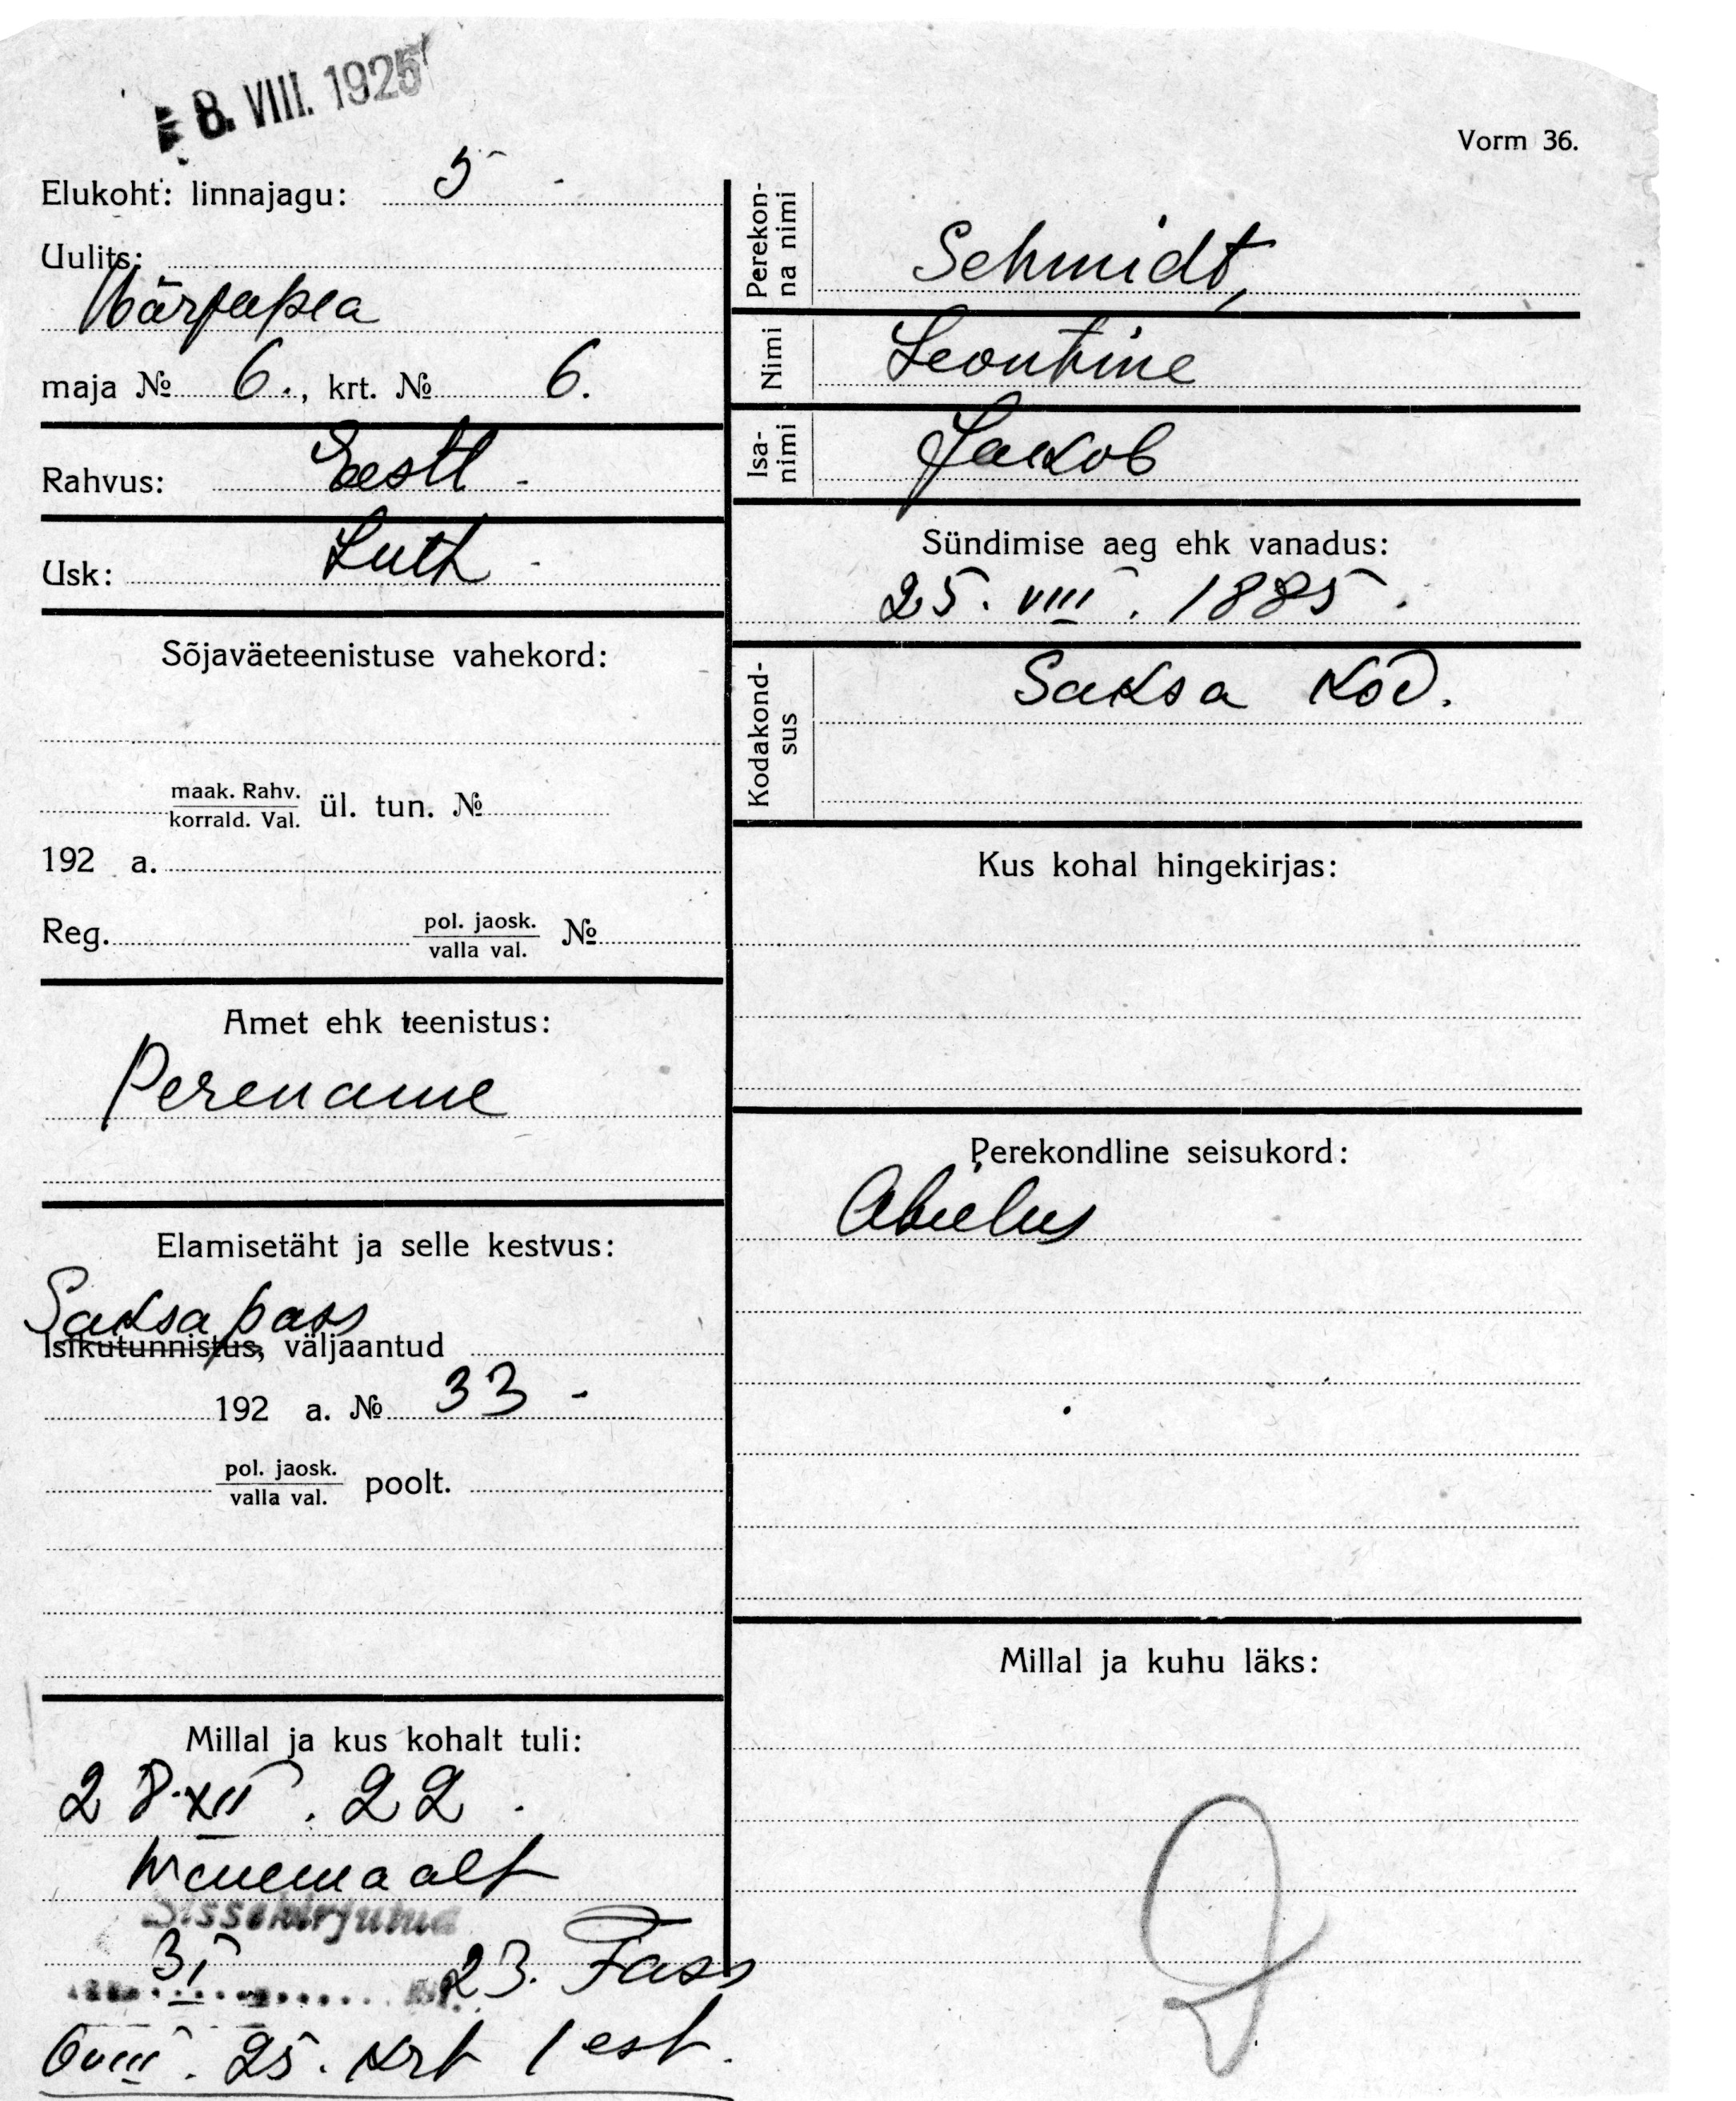 8. VIII. 1925
Vorm 36.
Elukoht: linnajagu: 5 -
Uulits:
Härjapea
maja № 6., krt. № 6.
Rahvus: Eesti -
Usk: Luth -
Sõjaväeteenistuse vahekord:
maak. Rahv.
korrald. Val. ül. tun. №
192 a.
Reg. pol. jaosk.
valla val. №
Amet ehk teenistus:
Perenaine
Elamisetäht ja selle kestvus:
Saksa pass
Isikutunnistus, väljaantud
192 a. № 33 -
pol. jaosk.
valla val. poolt.
Millal ja kus kohalt tuli:
28. XII. 22.
Wenemaalt
Sissekirjutud
3 I 23. Pass
6 VIII. 25. krt 1 est.
Perekon-
na nimi
Schmidt,
Nimi
Leontine
Isa-
nimi
Jakob
Sündimise aeg ehk vanadus:
25. VIII. 1885.
Kodakond-
sus
Saksa kod.
Kus kohal hingekirjas:
Perekondline seisukord:
Abielus
Millal ja kuhu läks: